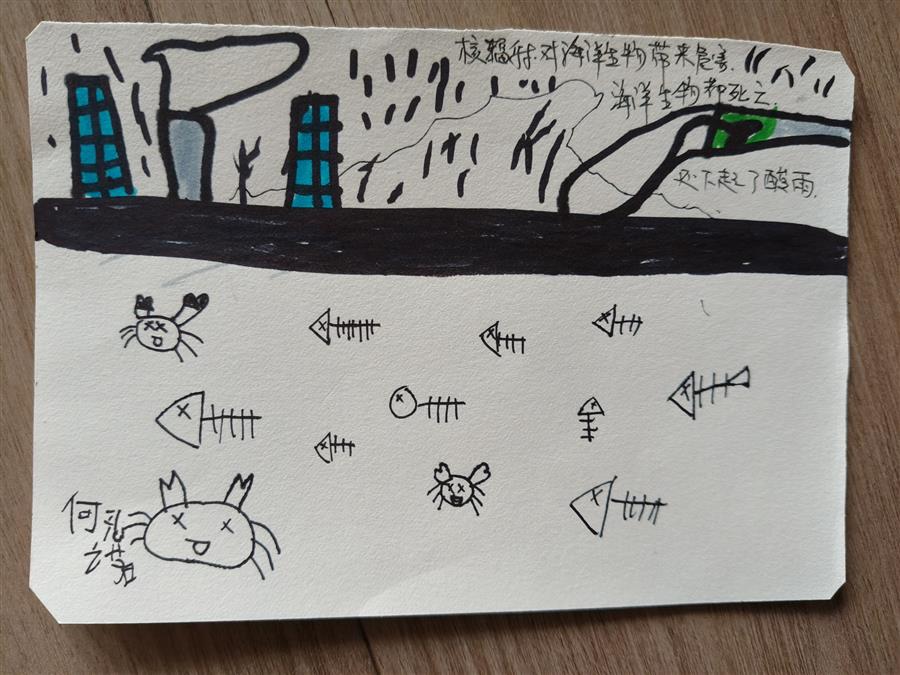 核辐射对海洋生物带来危害.
海洋生物都死亡.
还下起了酸雨.
何